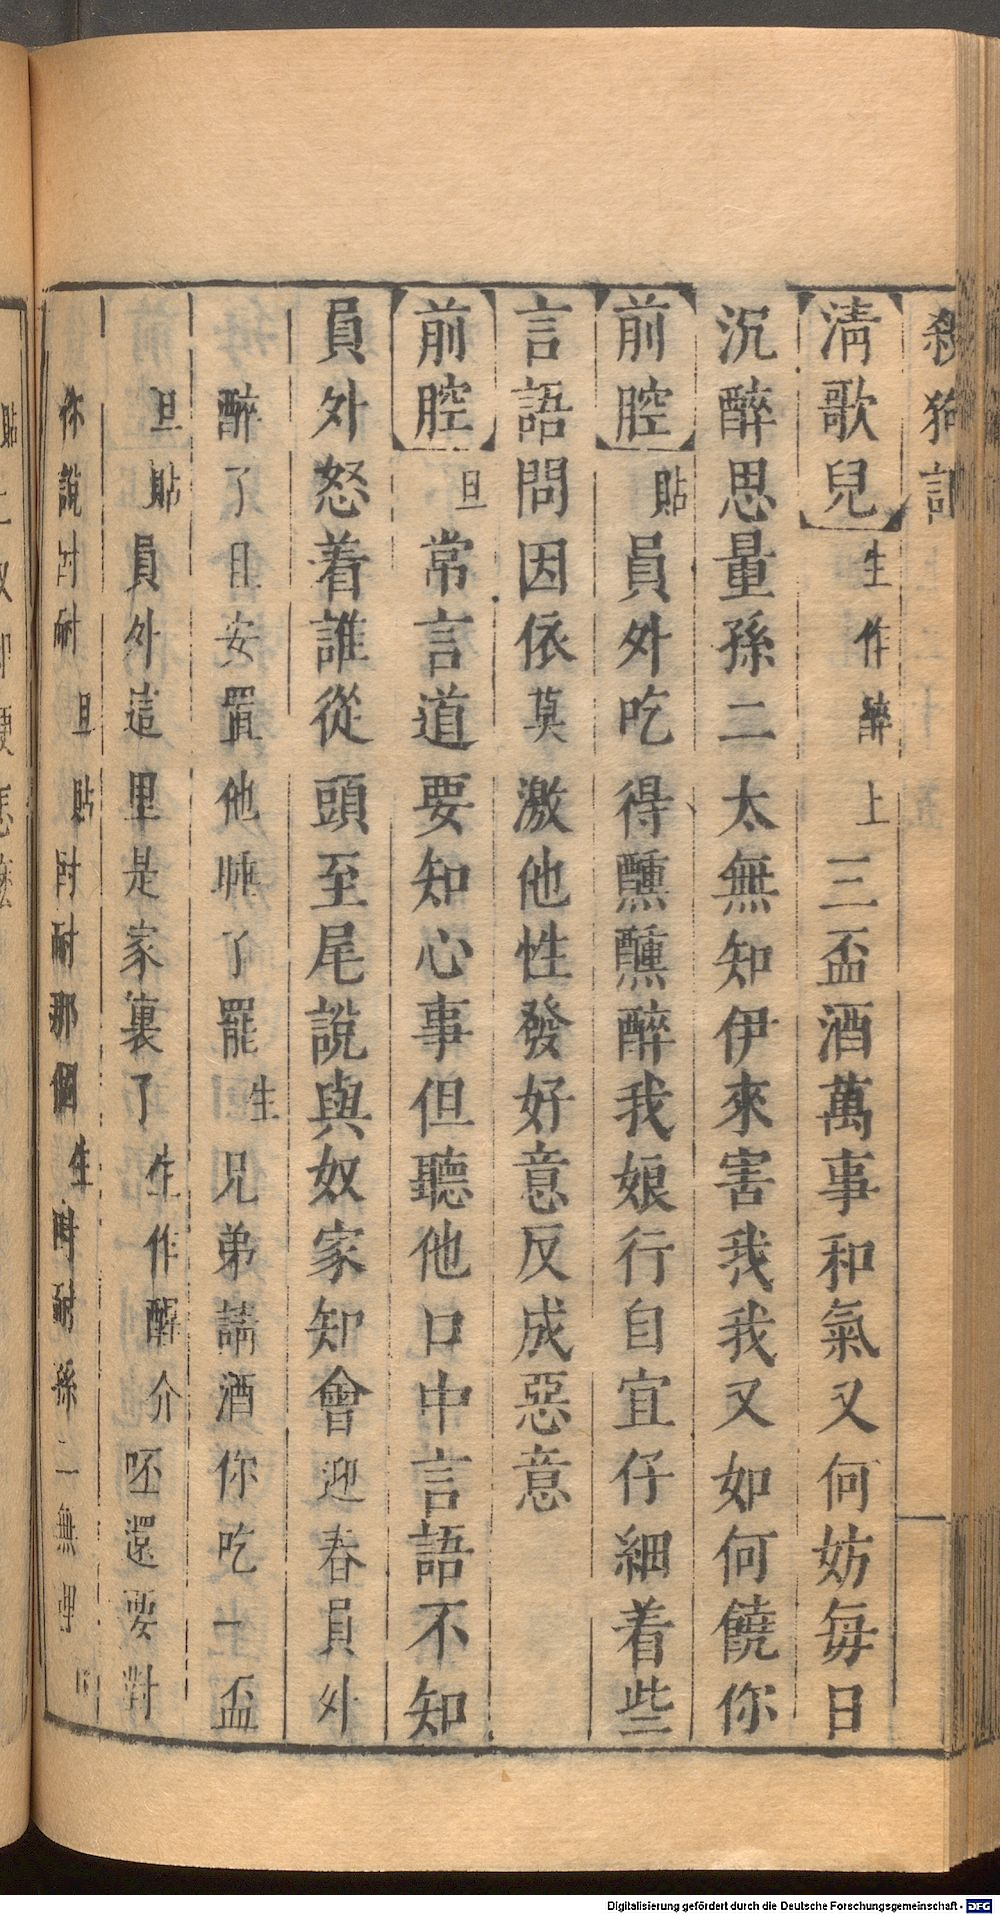 殺狗記
清歌兒 生作醉上 三盃酒萬事和氣又何妨每日
沉醉思量孫二太無知伊來害我我又如何饒你
前腔 貼 員外吃得醺醺醉我娘行自宜仔細着些
言語問因依莫激他性發好意反成惡意
前腔 旦 常言道要知心事但聽他口中言語不知
員外怒着誰從頭至尾說與奴家知會迎春員外
醉了且安置他睡了罷 生 兄弟請酒你吃一盃
旦貼 員外這里是家裏了 生作醉介 呸還要對
你說尀耐 旦貼 尀耐那個 生 尀耐孫二無理
Digitalisierung gefördert durch die Deutsche Forschungsgemeinschaft - DFG